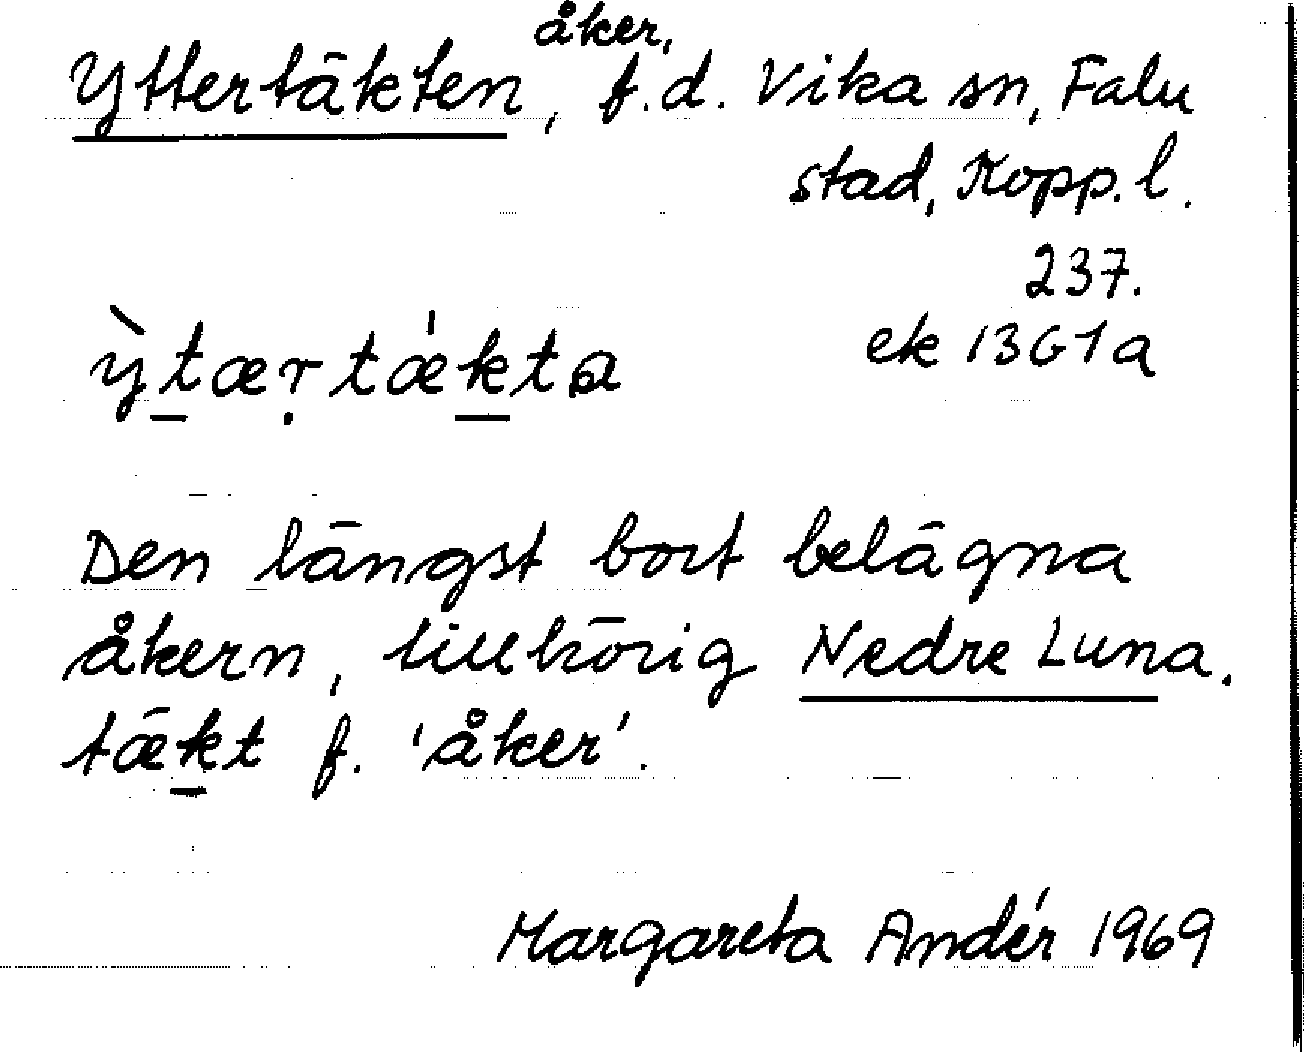 Yttertäkten, åker, f.d. Vika sn, Falu
stad, Kopp. l.
237.
ek 13G1a
ỳt̲æṛtǽk̲ta
Den längst bort belägna
åkern, tillhörig Nedre Luna.
tæk̲t f. 'åker'.
Margareta Andér 1969